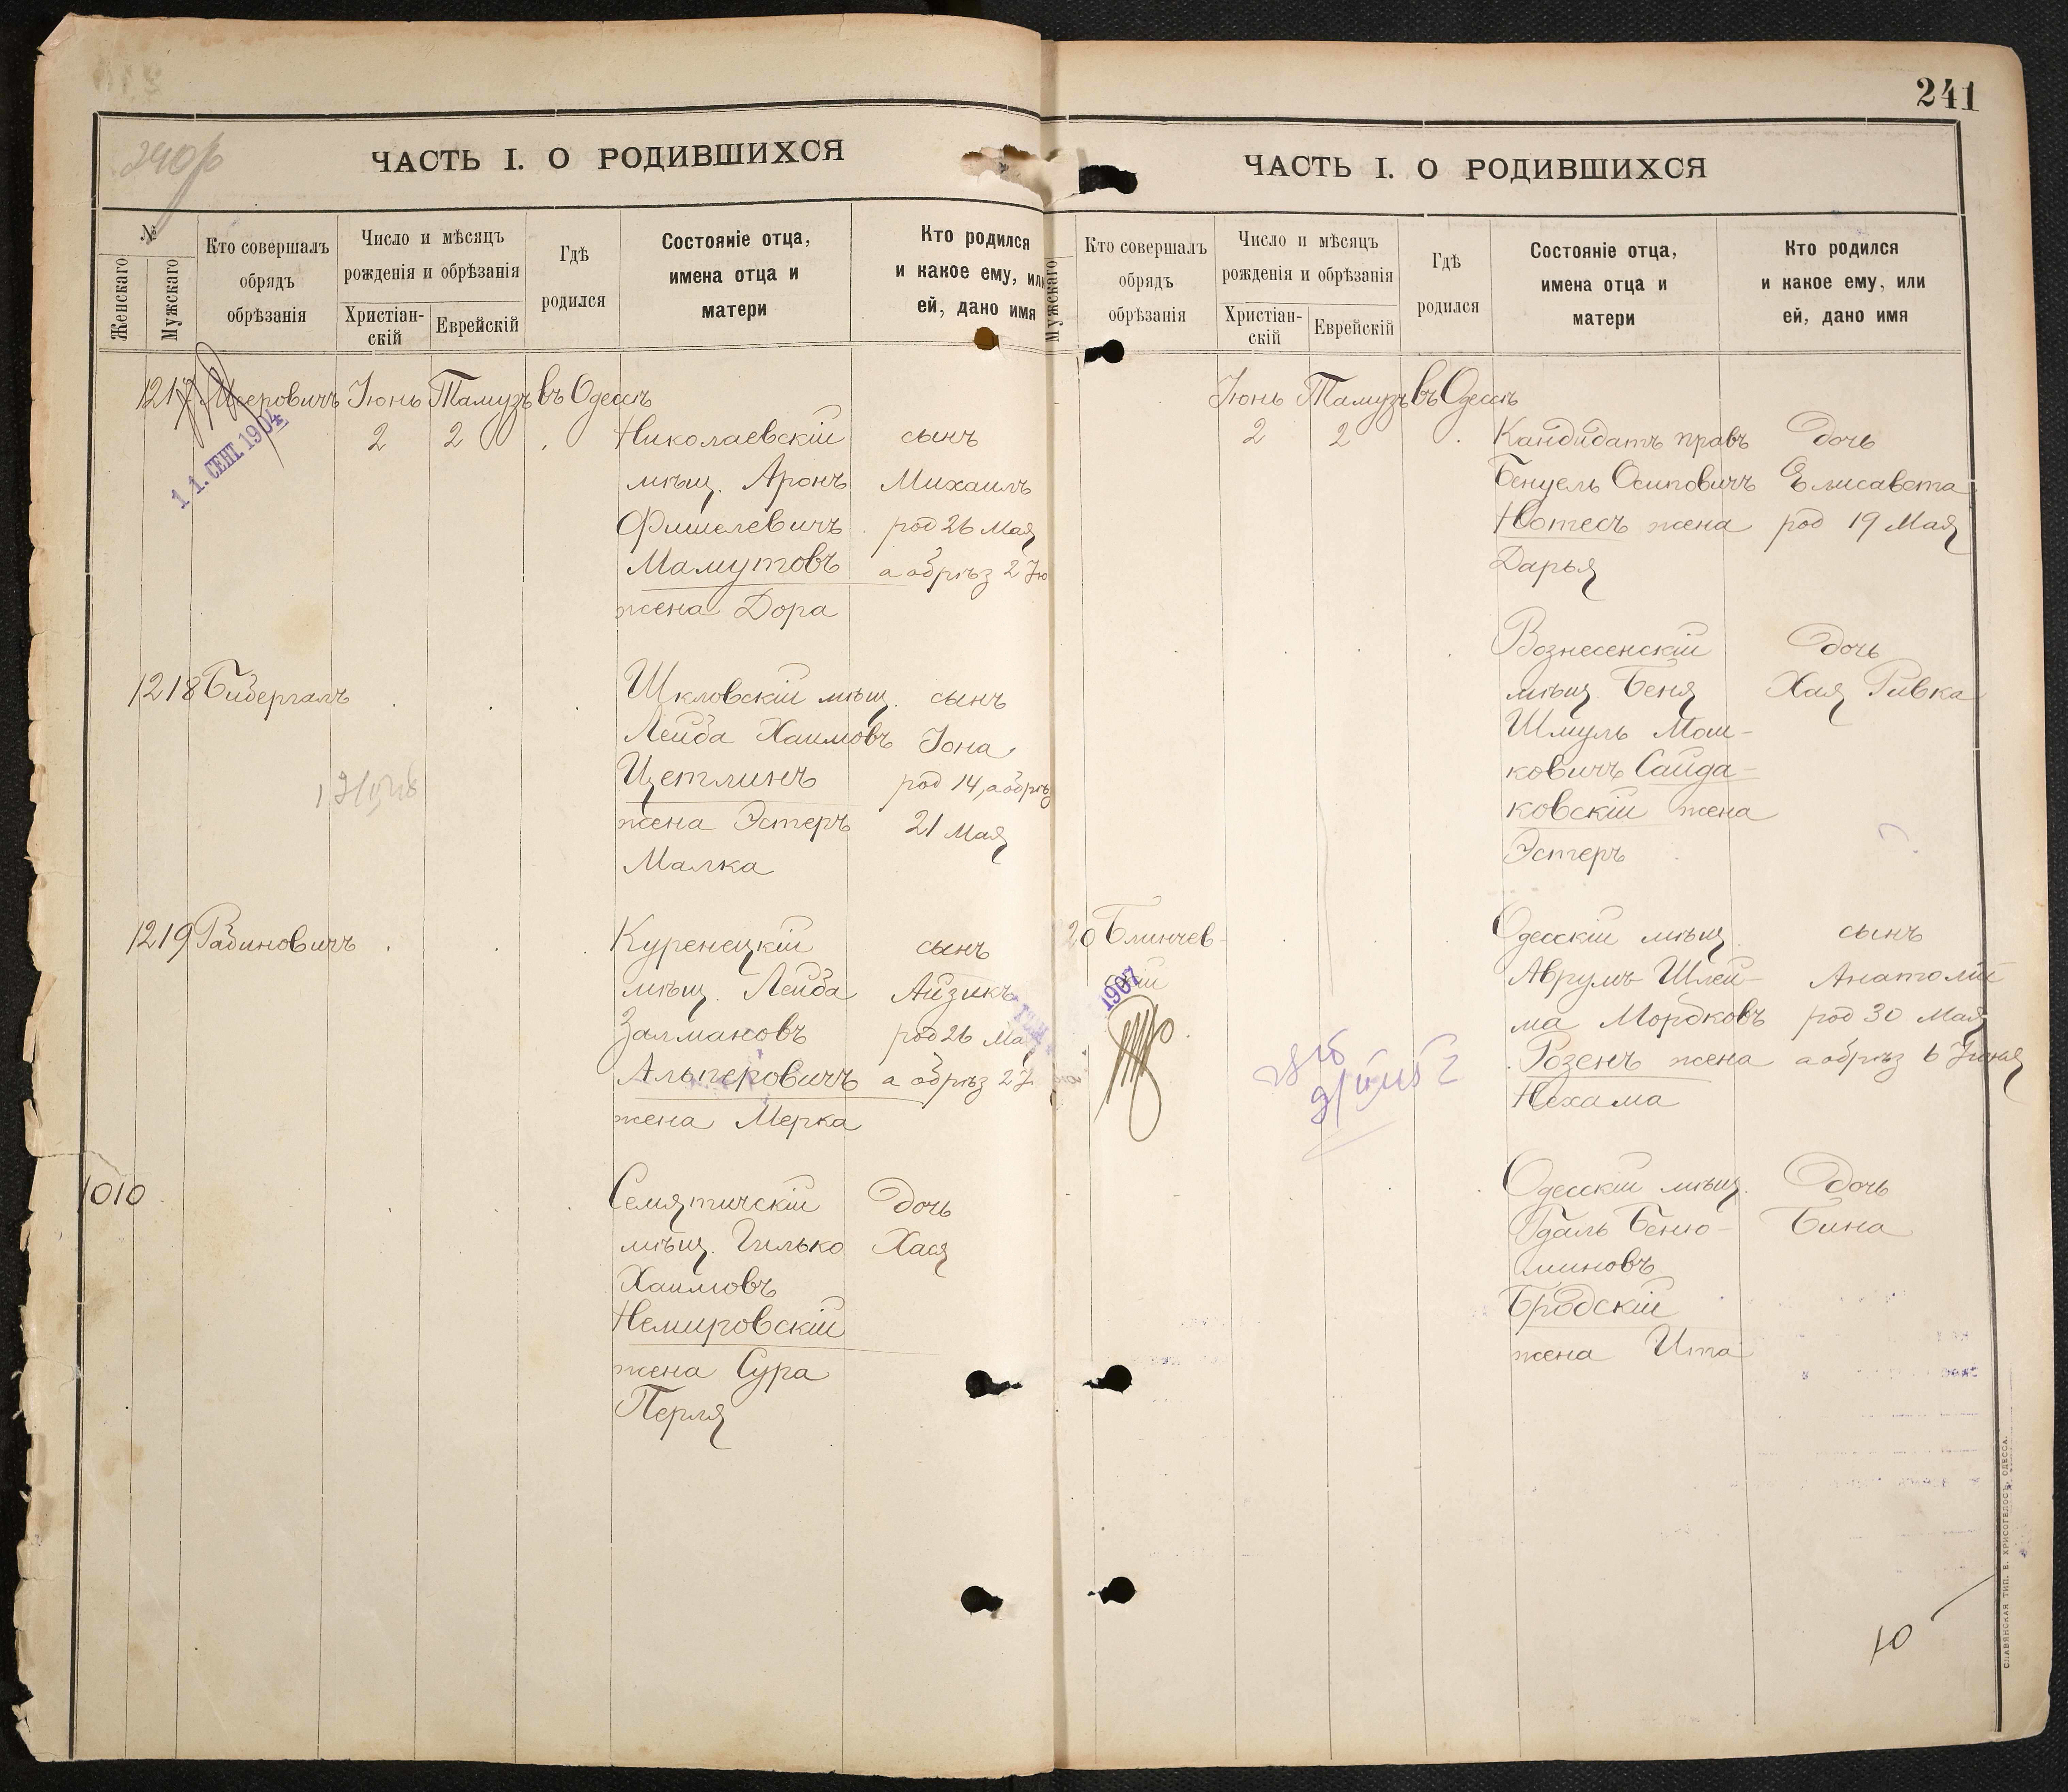 240 р
ЧАСТЬ I. О РОДИВШИХСЯ
№
Женскаго
Мужскаго
Кто совершалъ
обрядъ
обрѣзанія
Число и мѣсяцъ
рожденія и обрѣзанія
Христіан-
скій
Еврейскій
Гдѣ
родился
Состояніе отца,
имена отца и
матери
Кто родился
и какое ему, или
ей, дано имя
1217 Мееровичъ Іюнь Тамузъ въ Одессѣ
2 2 Николаевскій сынъ
11. СЕНТ. 1904
мѣщ. Аронъ Михаилъ
Фишелевичъ род 26 Мая
Мамутовъ а обрѣз 2 Iю
жена Дора
1218 Бибергалъ Шкловскій мѣщ. сынъ
Лейба Хаимовъ Іона
Цетлинъ род 14, а обрѣз
жена Эстеръ 21 Мая
Малка
1219 Рабиновичъ Куренецкій сынъ
мѣщ. Лейба Айзикъ
Залмановъ род 26 Ма
Альперовичъ а обрѣз 2 I
жена Мерка
1010 Семятичскій Дочь
мѣщ. Гилько Хася
Хаимовъ
Немировскій
жена Сура
Перля
241
ЧАСТЬ I. О РОДИВШИХСЯ
Мужскаго
Кто совершалъ
обрядъ
обрѣзанія
Число и мѣсяцъ
рожденія и обрѣзанія
Христіан-
скій
Еврейскій
Гдѣ
родился
Состояніе отца,
имена отца и
матери
Кто родился
и какое ему, или
ей, дано имя
Іюнь Тамузъ въ Одессѣ
2 2 Кандидатъ правъ Дочь
Бенуель Осиповичъ Елисавета
Нотесъ жена род 19 Мая
Дарья
Вознесенскій Дочь
мѣщ. Беня Хая Ривка
Шмуль Мош-
ковичъ Сайда-
ковскій жена
Эстеръ
20 Блинчев- Одесскій мѣщ. сынъ
скій Аврумъ Шлей- Анатолій
1907
ма Мордковъ род 30 Мая
Розенъ жена а обрѣз 6 Іюня
Нехама
Одесскій мѣщ. Дочь
Гдаль Беню- Бина
миновъ
Бродскій
жена Ита
10
СЛАВЯНСКАЯ ТИП. Е. ХРИСОГЕЛОСЪ, ОДЕССА.